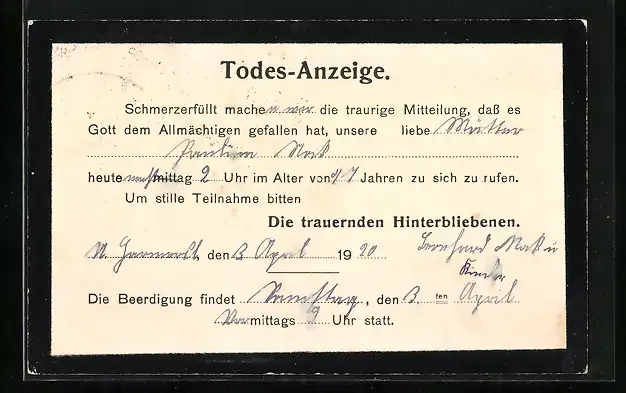 Todes-Anzeige.
Schmerzerfüllt machen wir die traurige Mitteilung, daß es
Gott dem Allmächtigen gefallen hat, unsere liebe Mutter
heute nachmittag 2 Uhr im Alter von 47 Jahren zu sich zu rufen.
Um stille Teilnahme bitten
Die trauernden Hinterbliebenen.
den April 1920 Leonhard
Kinder
Die Beerdigung findet Samstag, den 3. ten April
Vormittags 9 Uhr statt.